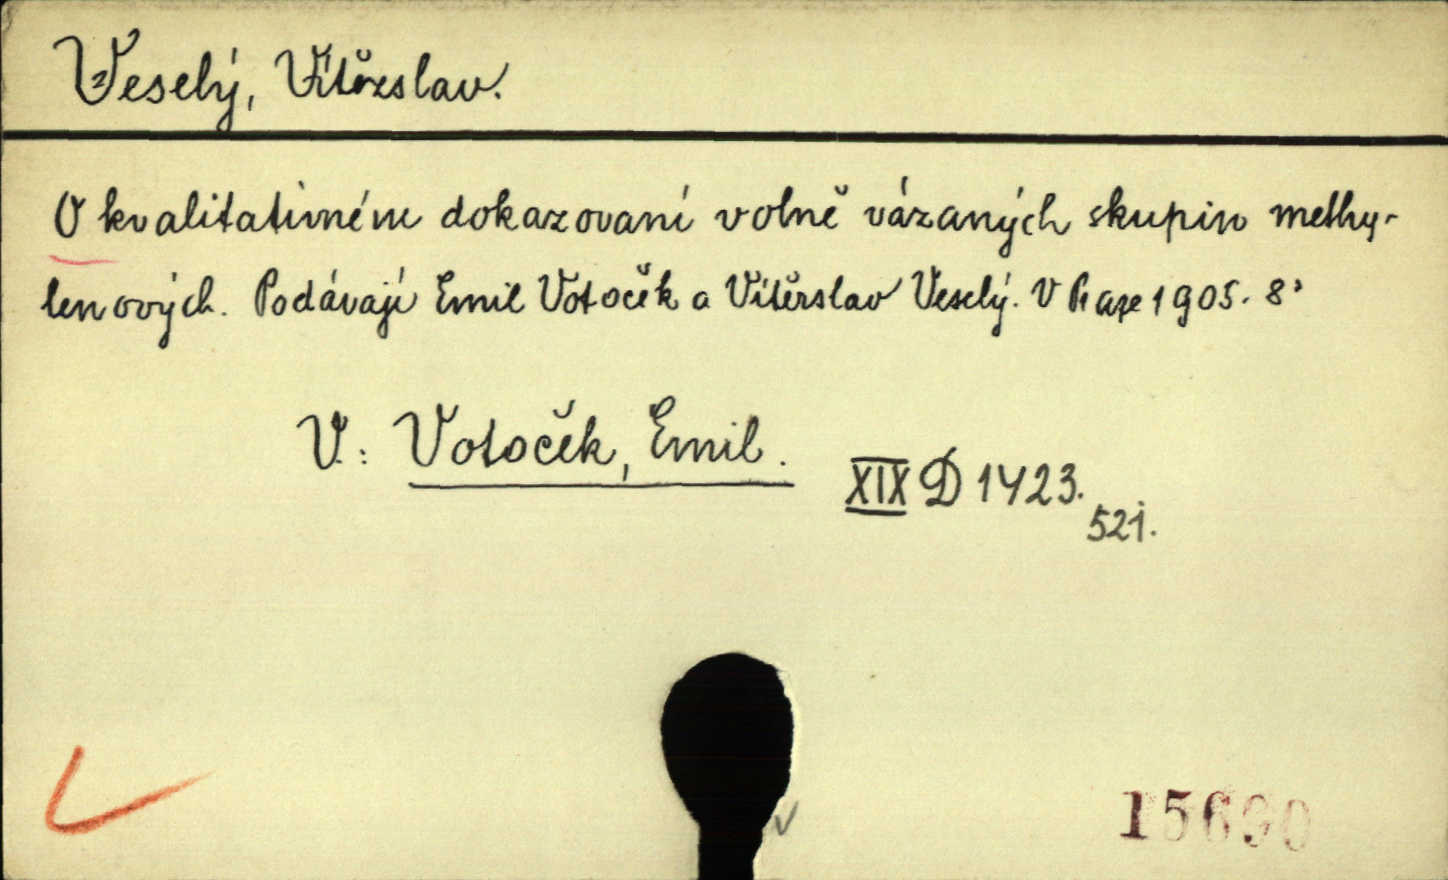 Veselý, Vítězslav.
O kvalitativném dokazovaní volně vázaných skupin methy-
lenových. Podávají Emil Votoček a Vítězslav Veselý. V Praze 1905. 8°
V.: Votoček, Emil.
XIX D 1423.
521.
15690